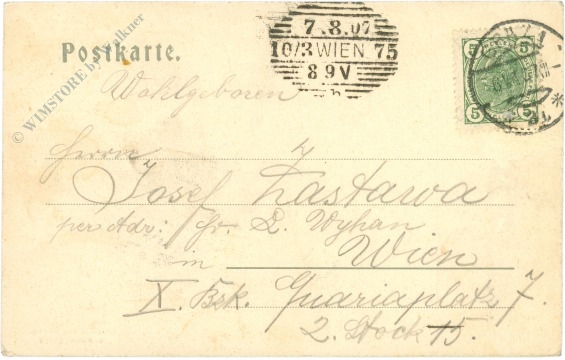 Postkarte.
© WIMSTORE by Falkner
7.8.07
10/3 WIEN 75
8 9V
5 5
5 5
Wohlgeboren
Herrn
Josef Zástawa
per Adr: Fr. L. Wyhan
in Wien
X. Bzk. Quariaplatz 7.
2. Stock 15.